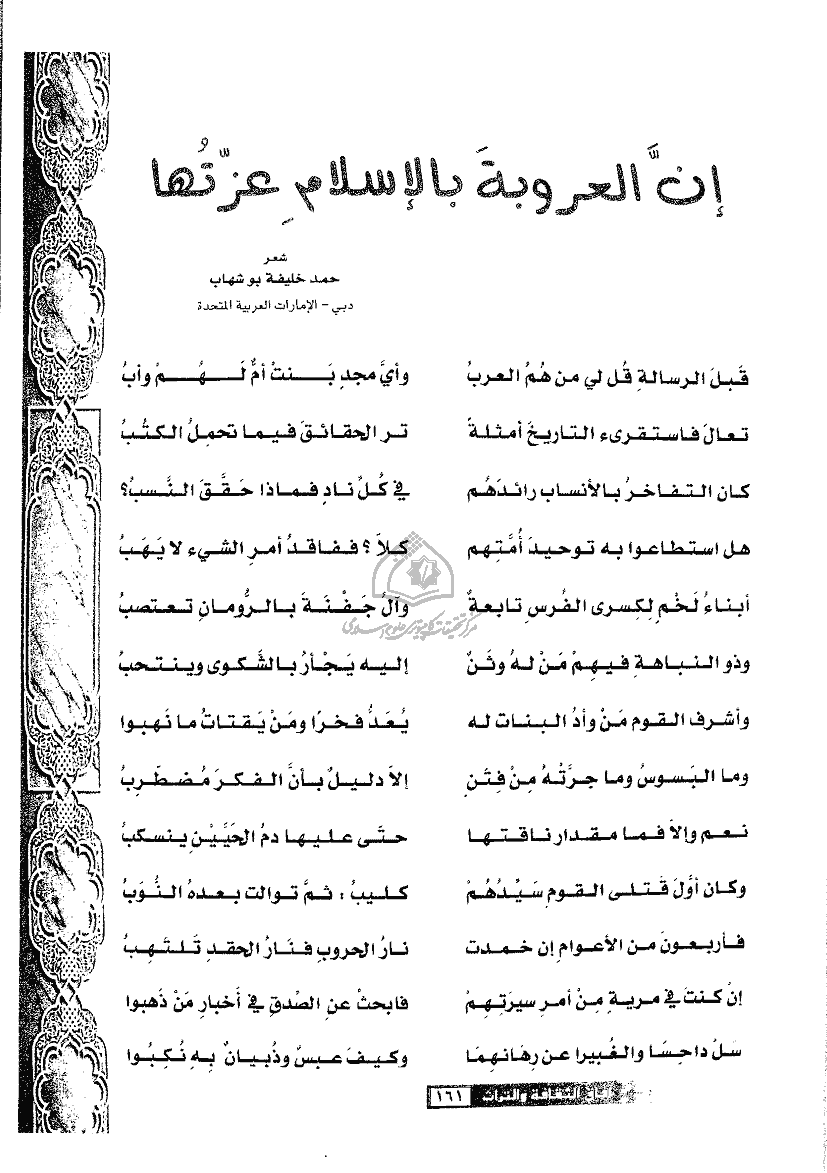 إنَّ العروبةَ بالإسلامِ عزّتُها
شعر
حمد خليفة بو شهاب
دبي - الإمارات العربية المتحدة
قبلَ الرسالةِ قُل لي من هُمُ العربُ وأيَّ مجدٍ بَنتْ أمٌّ لَهُمْ وأبُ
تعالَ فاستقرىء التاريخَ أمثلةً ترَ الحقائقَ فيما تحملُ الكتُبُ
كان التفاخرُ بالأنسابِ رائدَهُم في كُلِّ نادٍ فماذا حَقَّقَ النَّسبُ؟
هل استطاعوا به توحيدَ أُمَّتِهم كلاَ؟ ففاقدُ أمرِ الشيءِ لا يَهَبُ
أبناءُ لَخْمٍ لِكسرى الفُرسِ تابعةٌ وآلُ جَفْنَةَ بالرُّومانِ تعتصبُ
وذو النباهةِ فيهمْ مَنْ لهُ وثنٌ إليه يَجْأرُ بالشَّكوى وينتحبُ
وأشرفُ القومِ مَنْ وأدُ البناتِ له يُعَدُّ فخرًا ومَنْ يَقتاتُ ما نَهبوا
وما البَسوسُ وما جرَّتْهُ مِنْ فِتَنٍ إلاَ دليلٌ بأنَّ الفكرَ مُضطَرِبُ
نعم وإلاَ فما مقدار ناقتها حتَّى عليها دمُ الحَيَّيْنِ ينسكبُ
وكان أوَّلَ قَتلى القومِ سَيِّدُهُمْ كليبُ، ثمَّ توالت بعدهُ النُّوَبُ
فأربعونَ من الأعوامِ إن خمدت نارُ الحروبِ فنارُ الحقدِ تَلتهبُ
إنْ كنتَ في مريةٍ مِنْ أمرِ سيرَتِهِم فابحثْ عنِ الصِّدقِ في أخبارِ مَنْ ذهبوا
سَلْ داحِسًا والغُبيرا عن رِهانِهِمَا وكيفَ عبسٌ وذُبيانٌ بِهِ نُكِبُوا
١٦١ آفاق الثقافة والتراث